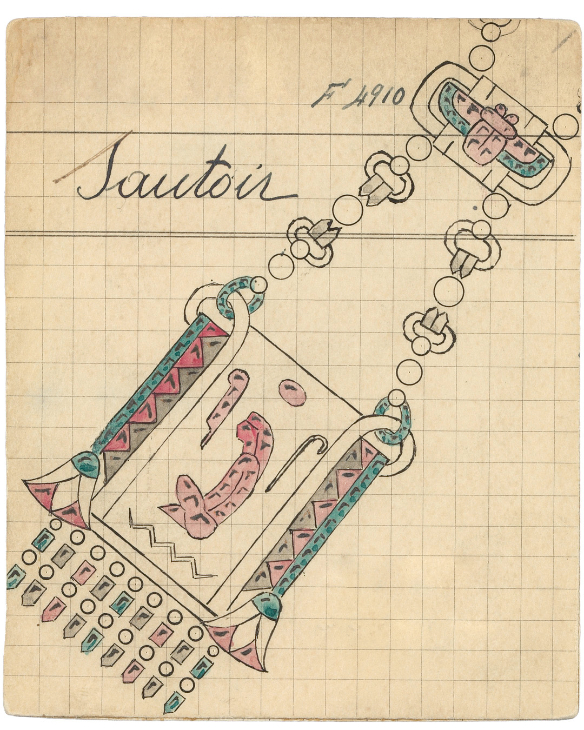 F 4910
Sautoir